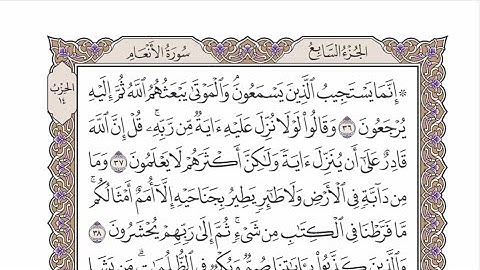 الجزء السابع
سورة الأنعام
الحزب
١٤
۞ إِنَّمَا يَسْتَجِيبُ الَّذِينَ يَسْمَعُونَ وَالْمَوْتَىٰ يَبْعَثُهُمُ اللَّهُ ثُمَّ إِلَيْهِ
يُرْجَعُونَ ٣٦ وَقَالُوا لَوْلَا نُزِّلَ عَلَيْهِ ءَايَةٌ مِّن رَّبِّهِ ۚ قُلْ إِنَّ اللَّهَ
قَادِرٌ عَلَىٰ أَن يُنَزِّلَ ءَايَةً وَلَٰكِنَّ أَكْثَرَهُمْ لَا يَعْلَمُونَ ٣٧ وَمَا
مِن دَابَّةٍ فِي الْأَرْضِ وَلَا طَائِرٍ يَطِيرُ بِجَنَاحَيْهِ إِلَّا أُمَمٌ أَمْثَالُكُم ۚ
مَّا فَرَّطْنَا فِي الْكِتَابِ مِن شَيْءٍ ۚ ثُمَّ إِلَىٰ رَبِّهِمْ يُحْشَرُونَ ٣٨
وَالَّذِينَ كَذَّبُوا بِـَٔايَاتِنَا صُمٌّ وَبُكْمٌ فِي الظُّلُمَاتِ ۗ مَن يَشَإِ